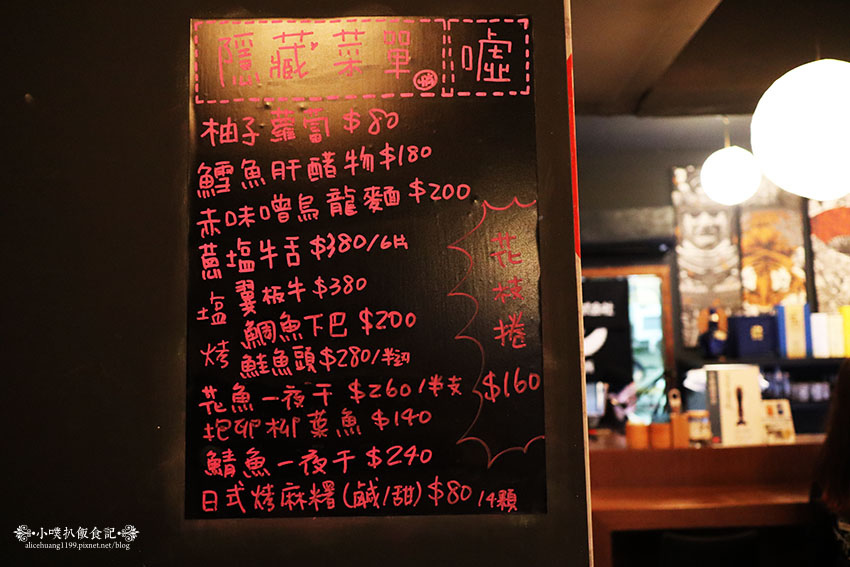 隱藏菜單 噓
柚子蘿蔔 $80
鱈魚肝醋物 $180
赤味噌烏龍麵 $200
蔥塩牛舌 $380/6片
翼板牛 $380
塩烤
鯛魚下巴 $200
鮭魚頭 $280/半
花魚一夜干 $260/半支
抱卵柳葉魚 $140
鯖魚一夜干 $240
日式烤麻糬(鹹/甜) $80/4顆
花枝捲
$160
小噗扒飯食記
alicehuang1199.pixnet.net/blog